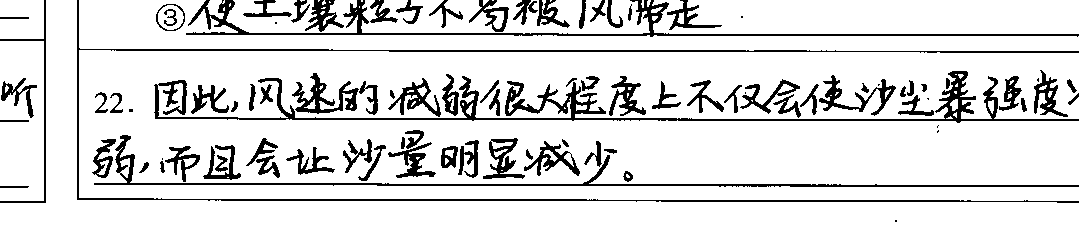 ③使土壤粒子不易被风带走
听
22. 因此,风速的减弱很大程度上不仅会使沙尘暴强度
弱,而且会让沙量明显减少。